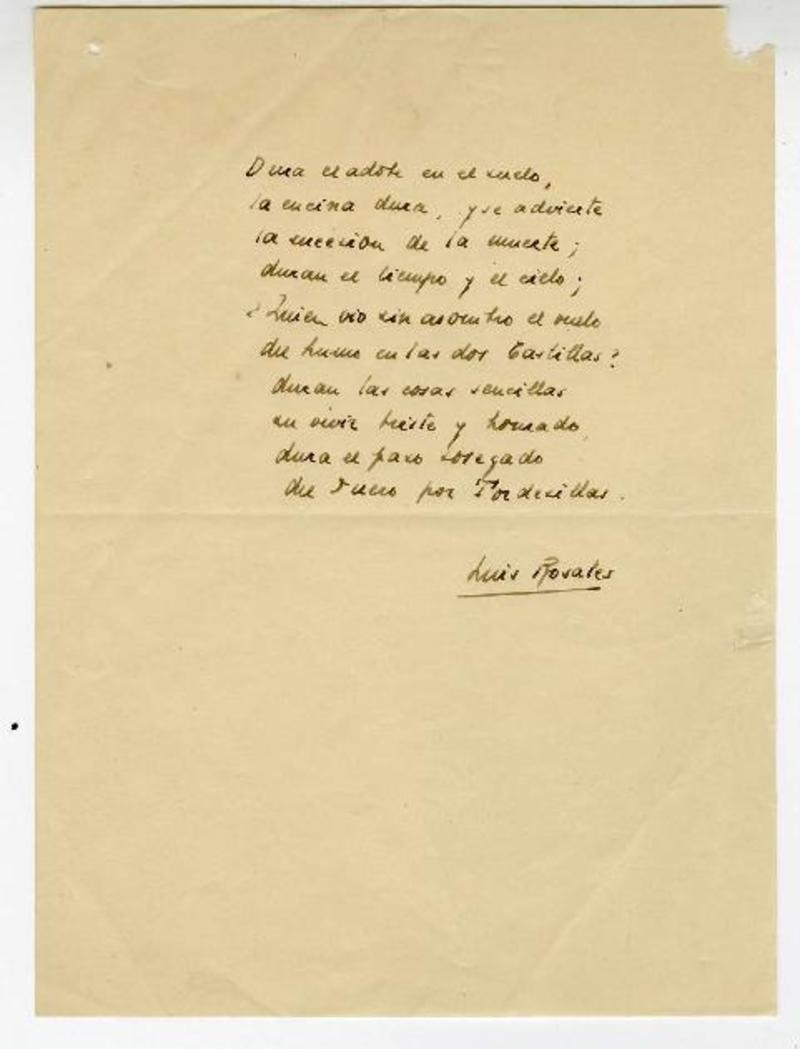 Dura el adobe en el suelo,
la encina dura, y se advierte
la sucesion de la muerte;
duran el tiempo y el cielo;
¿Quien vio sin asombro el vuelo
del humo en las dos Castillas?
duran las cosas sencillas
su vivir triste y honrado,
dura el paso sosegado
del Duero por Tordesillas.
Luis Rosales